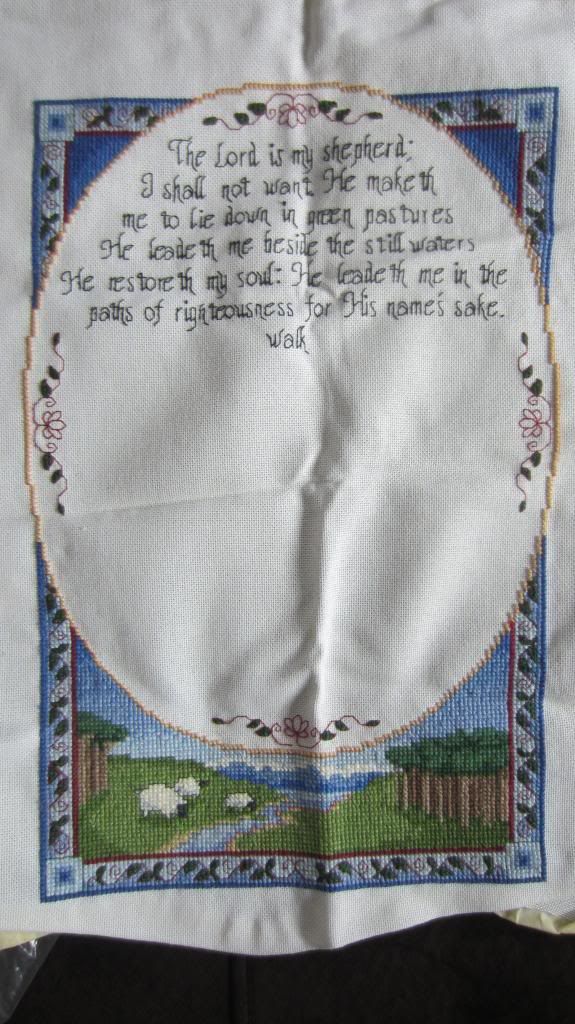 The Lord is my shepherd;
I shall not want. He maketh
me to lie down in green pastures
He leadeth me beside the still waters
He restoreth my soul: He leadeth me in the
paths of righteousness for His name's sake.
Walk